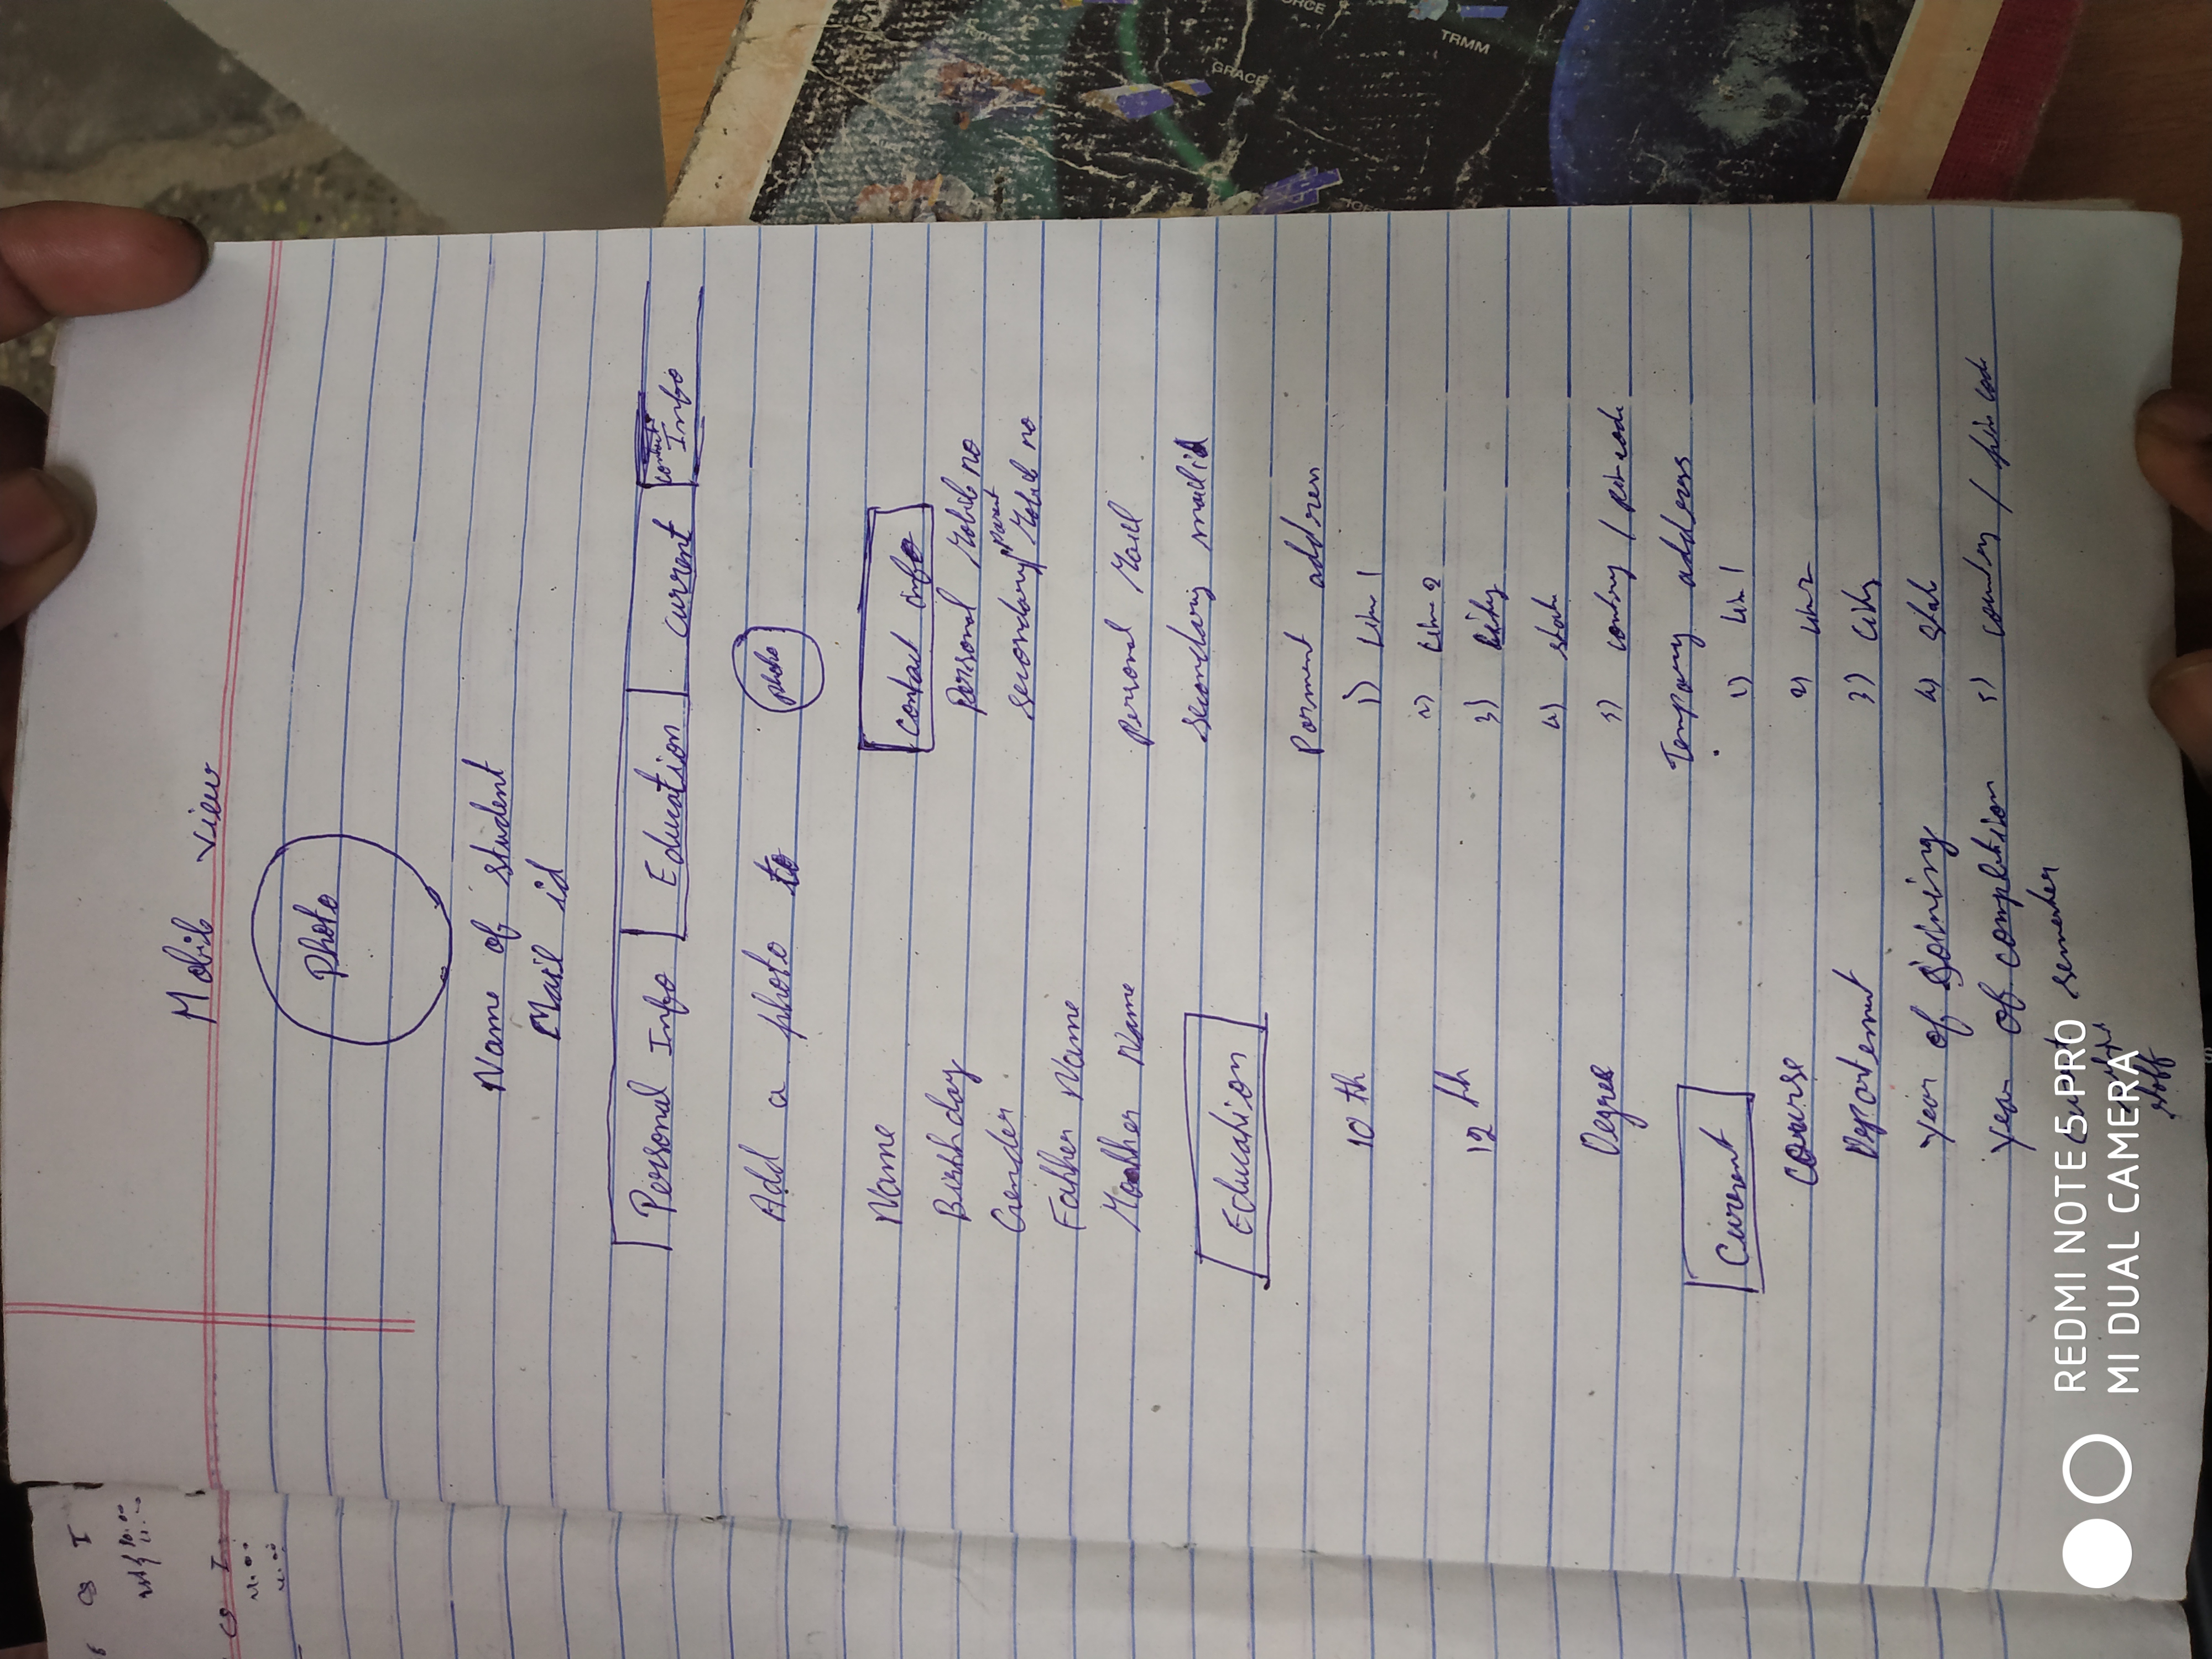 Mobile view
Photo
Name of student
Mail id
Personal Info Education Current Contact Info
Add a photo to photo
Name
Birthday
Gender
Father Name
Mother Name
Education
10 th
12 th
Degree
Current
Course
Department
year of Joining
year of completion
semester
staff
Contact info
Personal Mobile no
secondary "parent" Mobile no
Personal Mail
secondary mail id
Parment address
1) Line 1
2) Line 2
3) City
4) state
5) country / pin code
Tempary address
1) Lin 1
2) Line 2
3) City
4) stat
5) country / pin cod
REDMI NOTE 5 PRO
MI DUAL CAMERA
GRACE
TRMM